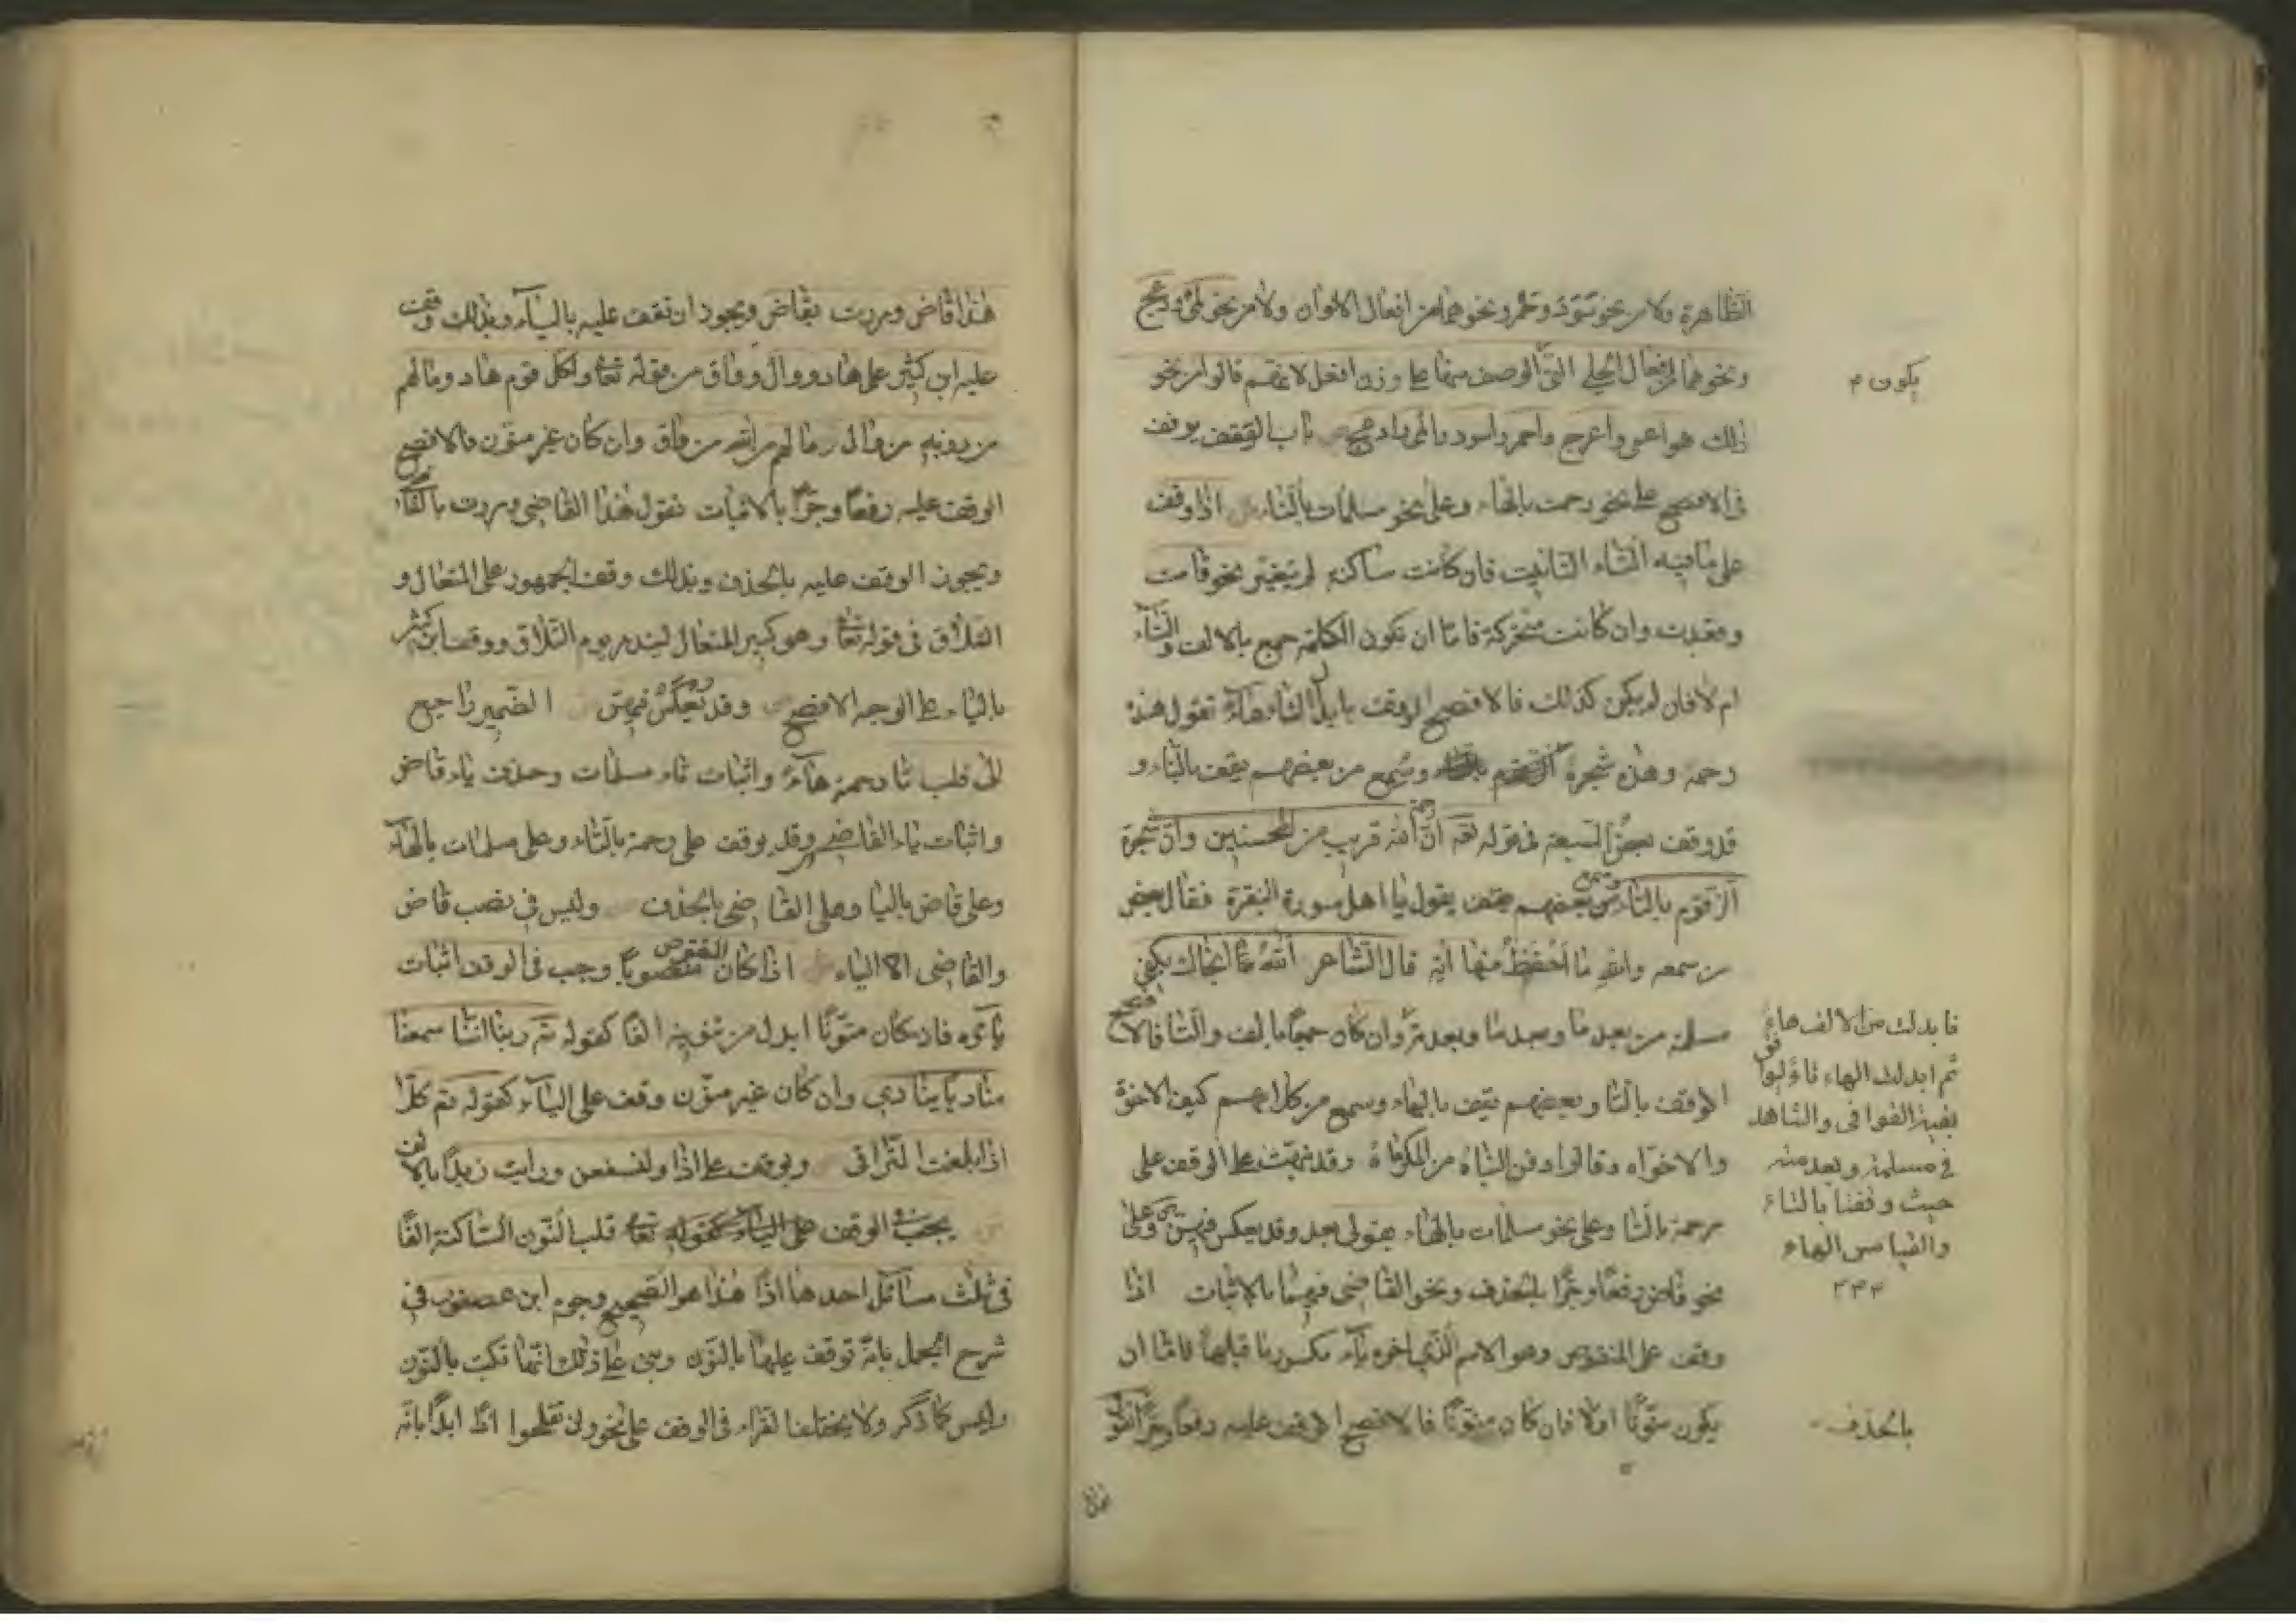 الظاهرة ولا من نحو سود وحمر ونحوهما من افعال الالوان ولا من نحو لمى ودعج
ونحوهما من افعال الحلي التي الوصف منها على وزن افعل لانهم قالوا من نحو
ذلك هو اعمى واعرج واحمر واسود والمى وادعج باب الوقف يوقف
فى الافصح على نحو رحمت بالهاء وعلى نحو مسلمات بالتاء اذا وقف
على ما فيه التاء التانيث فان كانت ساكنة لم يتغير نحو قامت
وقعدت وان كانت متحركة فاما ان تكون الكلمة جمع بالالف والتاء
ام لا فان لم يكن كذلك فالافصح الوقف بابدال التاء هاء تقول هذه
رحمة وهذه شجرة وسمع من بعضهم يقف بالتاء و
قد وقف بعض السبعة فى قوله تعه ان رحمة الله قريب من المحسنين وان شجرة
الزقوم بالتاء وسمع بعضهم يقول يا اهل سورة البقرة فقال بعض
من سمعه والله ما احفظ منها اية قال الشاعر الله نجاك بكفى
مسلمة من بعد ما وبعد ما وبعد مت وان كان جمعا بالف والتا فالافصح
الوقف بالتا وبعضهم يقف بالهاء وسمع من كلامهم كيف الاخوة
والاخواه وقالوا دفن البناه من المكرماه وقد نبهت على الوقف على
رحمة بالتا وعلى نحو مسلمات بالهاء بقولى بعد وقد يعكس فيهن وعلى
نحو قاض رفعا وجرا بالحذف ونحو القاضى فيهما بالاثبات اذا
وقف على المنقوص وهو الاسم الذى اخره ياء مكسور ما قبلها فاما ان
يكون منونا او لا فان كان منونا فالافصح الوقف عليه رفعا وجرا
يكون م
فابدلت من الالف هاء
ثم ابدلت الهاء تا
بقية القوافى والشاهد
فى مسلمة وبعد مته
حيث وقفنا بالتاء
والقياس الهاء
بالحذف
هذا قاض ومررت بقاض ويجوز ان تقف عليه بالياء وبذلك وقف
عليه ابن كثير على هاد ووال وواق من قوله تعا ولكل قوم هاد وما لهم
من دونه من وال وما لهم من الله من واق وان كان غير منون فالافصح
الوقف عليه رفعا وجرا بالاثبات تقول هذا القاضى ومررت بالقاضى
ويجوز الوقف عليه بالحذف وبذلك وقف الجمهور على المتعال و
التلاق فى قوله تعا وهو كبير المتعال لينذر يوم التلاق ووقف ابن كثير
بالياء على الوجه الافصح وقد يعكس فيهن الضمير راجع
الى قلب تا رحمة هاء واثبات تاء مسلمات وحذف ياء قاض
واثبات ياء القاضى وقد يوقف على رحمة بالتاء وعلى مسلمات بالهاء
وعلى قاض باليا وعلى القاضى بالحذف وليس في نصب قاض
والقاضى الا الياء اذا كان المنقوص منصوبا وجب فى الوقف اثبات
يائه فان كان منونا ابدل من تنوينه الفا كقوله تم ربنا اننا سمعنا
مناديا ينادي وان كان غير منون وقف على الياء كقوله تم كلا
اذا بلغت التراقى ويوقف على اذا ولنسفعن ورايت زيدا بالالف
يجب فى الوقف على الياء كقوله تعا قلب النون الساكنة الفا
فى ثلث مسائل احدها اذا هذا هو الصحيح وجزم ابن عصفور في
شرح الجمل بانه توقف عليها بالنون وبنى على ذلك انها تكتب بالنون
وليس كما ذكر ولا يختلف القراء فى الوقف على نحو ولن تفلحوا اذا ابدا بانه